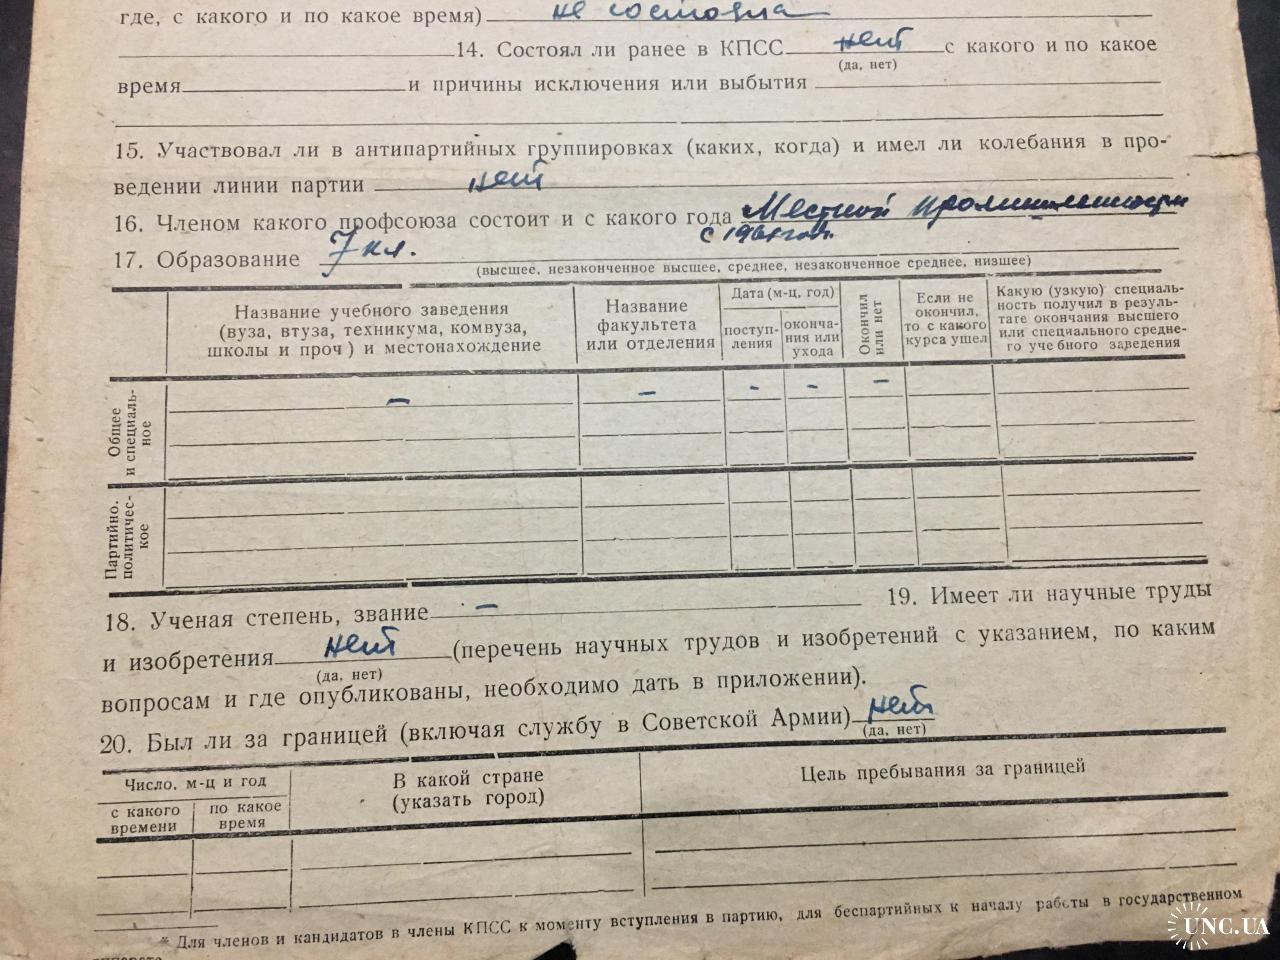 где, с какого и по какое время) не состояла
14. Состоял ли ранее в КПСС нет с какого и по какое
(да, нет)
время и причины исключения или выбытия
15. Участвовал ли в антипартийных группировках (каких, когда) и имел ли колебания в про-
ведении линии партии нет
16. Членом какого профсоюза состоит и с какого года Местной промышленности
с 1961 года
17. Образование 7 кл.
(высшее, незаконченное высшее, среднее, незаконченное среднее, низшее)
Название учебного заведения
(вуза, втуза, техникума, комвуза,
школы и проч) и местонахождение
Название
факультета
или отделения
Дата (м-ц, год)
поступ-
ления
оконча-
ния или
ухода
Окончил
или нет
Если не
окончил,
то с какого
курса ушел
Какую (узкую) специаль-
ность получил в резуль-
тате окончания высшего
или специального средне-
го учебного заведения
Общее
и специаль-
ное
— — - - —
Партийно.
политичес-
кое
18. Ученая степень, звание — 19. Имеет ли научные труды
и изобретения нет (перечень научных трудов и изобретений с указанием, по каким
(да, нет)
вопросам и где опубликованы, необходимо дать в приложении).
20. Был ли за границей (включая службу в Советской Армии) нет
(да, нет)
Число, м-ц и год
с какого
времени
по какое
время
В какой стране
(указать город)
Цель пребывания за границей
* Для членов и кандидатов в члены КПСС к моменту вступления в партию, для беспартийных к началу работы в государственном
UNC.UA